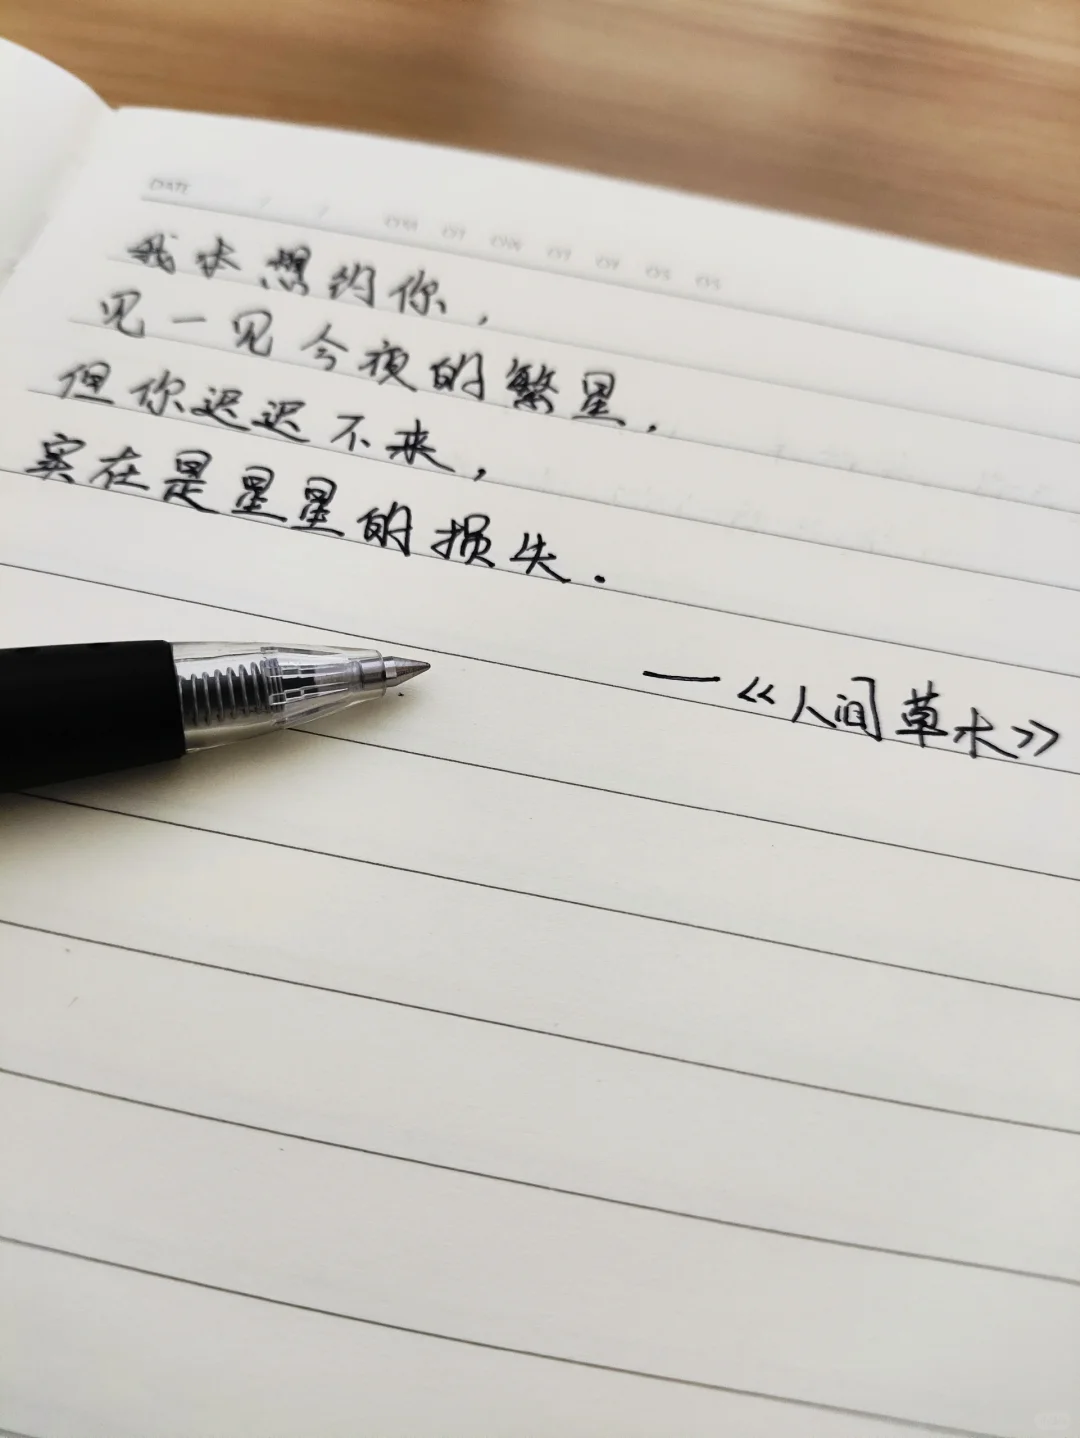 DATE
我本想约你，
见一见今夜的繁星.
但你迟迟不来，
实在是星星的损失.
—《人间草木》